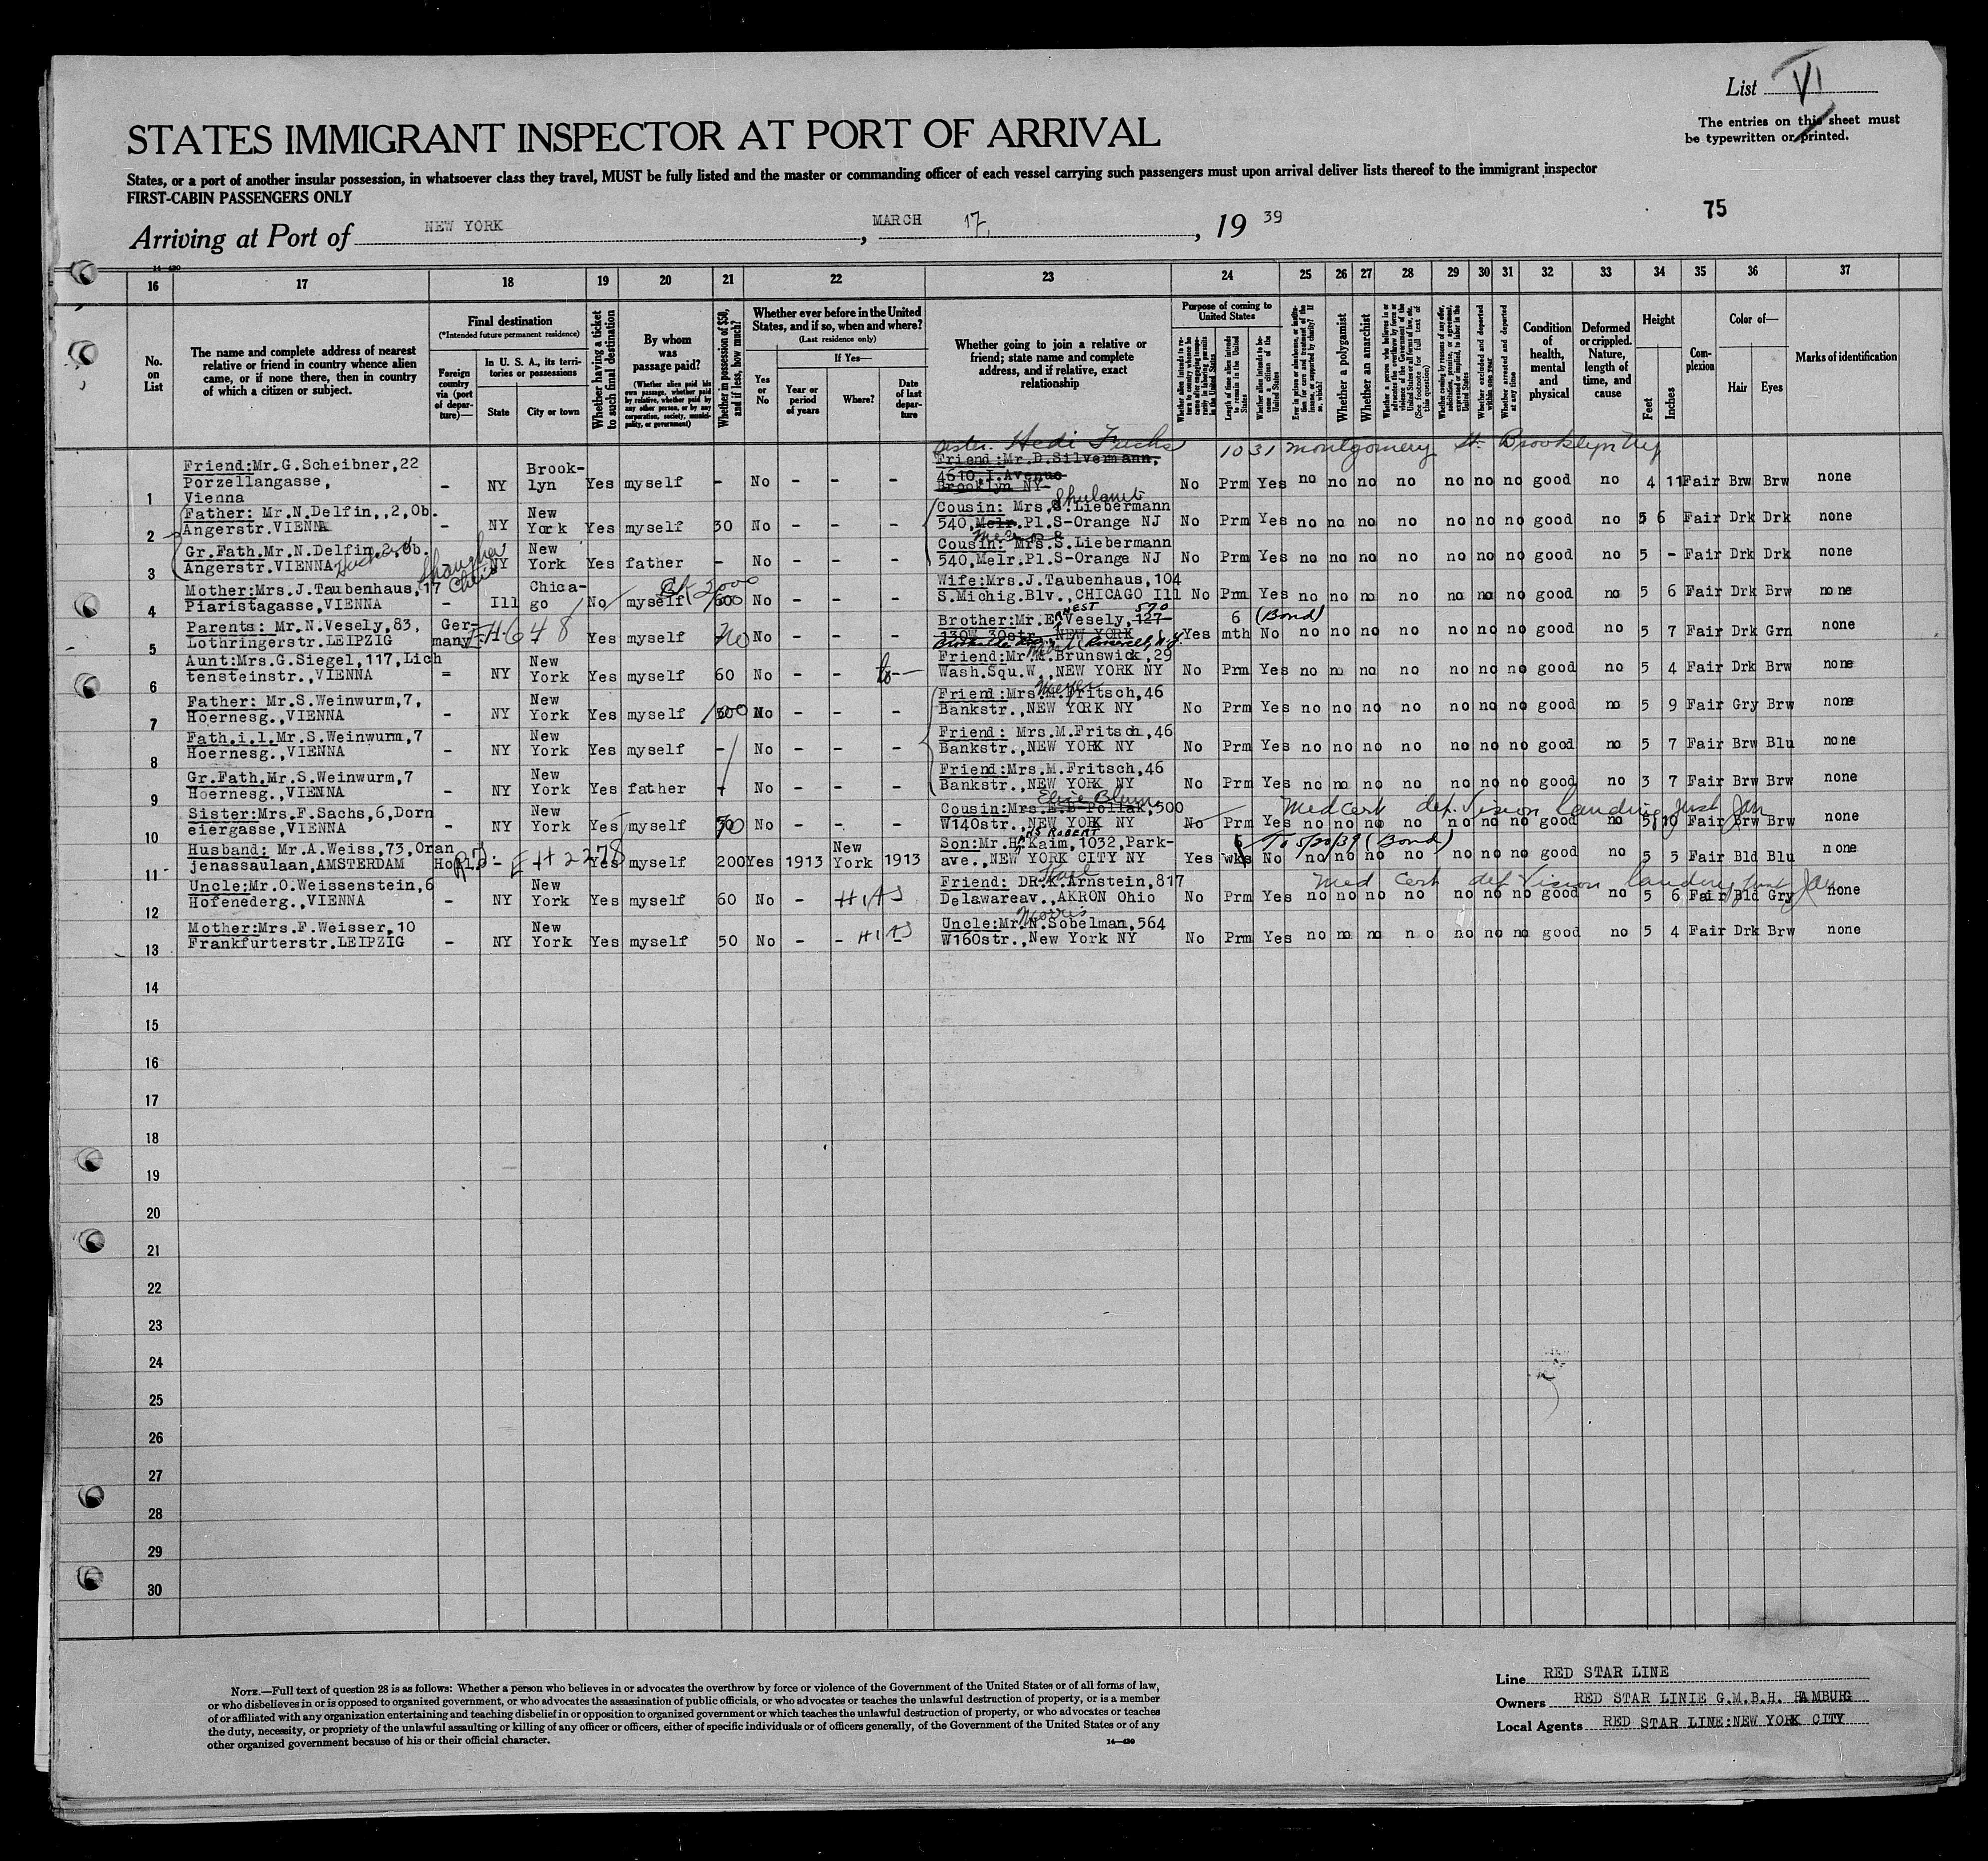 List VI
The entries on this sheet must
be typewritten or printed.
STATES IMMIGRANT INSPECTOR AT PORT OF ARRIVAL
States, or a port of another insular possession, in whatsoever class they travel, MUST be fully listed and the master or commanding officer of each vessel carrying such passengers must upon arrival deliver lists thereof to the immigrant inspector
FIRST-CABIN PASSENGERS ONLY
75
Arriving at Port of NEW YORK, MARCH 17, 19 39
14—420
16 17 18 19 20 21 22 23 24 25 26 27 28 29 30 31 32 33 34 35 36 37
No. on List
The name and complete address of nearest relative or friend in country whence alien came, or if none there, then in country of which a citizen or subject.
Final destination
(*Intended future permanent residence)
Foreign country via (port of departure)—
In U. S. A., its territories or possessions
State
City or town
Whether having a ticket to such final destination
By whom was passage paid?
(Whether alien paid his own passage, whether paid by relative, whether paid by any other person, or by any corporation, society, municipality, or government)
Whether in possession of $50, and if less, how much?
Whether ever before in the United States, and if so, when and where?
(Last residence only)
Yes or No
If Yes—
Year or period of years
Where?
Date of last departure
Whether going to join a relative or friend; state name and complete address, and if relative, exact relationship
Purpose of coming to United States
Length of time alien intends to remain in the United States
Whether alien intends to become a citizen of the United States
Whether a polygamist
Whether an anarchist
Whether excluded and deported within one year
Whether arrested and deported at any time
Condition of health, mental and physical
Deformed or crippled. Nature, length of time, and cause
Height
Feet
Inches
Complexion
Color of—
Hair
Eyes
Marks of identification
Sister. Hedi Fuchs 1031 Montgomery St. Brooklyn NY
1 Friend:Mr.G.Scheibner,22 Porzellangasse, Vienna - NY Brook-lyn Yes myself - No - - - Friend:Mr.D.Silvermann, 4610,I.Avenue Brooklyn NY- No Prm Yes no no no no no no no good no 4 11 Fair Brw Brw none
2 Father: Mr.N.Delfin,,2,Ob. Angerstr.VIENNA - NY New York Yes myself 30 No - - - Cousin: Mrs.S.Liebermann 540,Melr.Pl.S-Orange NJ No Prm Yes no no no no no no no good no 5 6 Fair Drk Drk none
3 Gr.Fath.Mr.N.Delfin,2,Ob. Angerstr.VIENNA NY New York Yes father - No - - - Cousin: Mrs.S.Liebermann 540,Melr.Pl.S-Orange NJ No Prm Yes no no no no no no no good no 5 - Fair Drk Drk none
Shanghai China
4 Mother:Mrs.J.Taubenhaus,17 Piaristagasse,VIENNA - Ill Chica-go No myself 60 No - - - Wife:Mrs.J.Taubenhaus,104 S.Michig.Blv.,CHICAGO Ill No Prm Yes no no no no no no no good no 5 6 Fair Brw Brw none
5 Parents: Mr.N.Vesely,83, Lothringerstr.LEIPZIG Ger-many EH648 Yes myself No No - - - Brother:Mr.ERNEST Vesely,127- 570 130W 30str. NEW YORK Yes 6 mth (Bond) No no no no no no no no good no 5 7 Fair Drk Grn none
6 Aunt:Mrs.G.Siegel,117,Lich tensteinstr.,VIENNA = NY New York Yes myself 60 No - - to- Friend:Mr.M.Brunswick,29 Wash.Squ.W.,NEW YORK NY No Prm Yes no no no no no no no good no 5 4 Fair Drk Brw none
7 Father: Mr.S.Weinwurm,7, Hoernesg.,VIENNA - NY New York Yes myself No - - - Friend:Mrs.M.Fritsch,46 Bankstr.,NEW YORK NY No Prm Yes no no no no no no no good no 5 9 Fair Gry Brw none
8 Fath.i.l.Mr.S.Weinwurm,7 Hoernesg.,VIENNA - NY New York Yes myself - No - - - Friend: Mrs.M.Fritsch,46 Bankstr.,NEW YORK NY No Prm Yes no no no no no no no good no 5 7 Fair Brw Blu none
9 Gr.Fath.Mr.S.Weinwurm,7 Hoernesg.,VIENNA - NY New York Yes father - No - - - Friend:Mrs.M.Fritsch,46 Bankstr.,NEW YORK NY No Prm Yes no no no no no no no good no 3 7 Fair Brw Brw none
Med cert def. Vision landing just Jan
10 Sister:Mrs.F.Sachs,6,Dorn eiergasse,VIENNA - NY New York Yes myself No - - - Elise Blum Cousin:Mrs.E.B-Pollak,500 W140str.,NEW YORK NY No Prm Yes no no no no no no no good no 5 10 Fair Brw Brw none
11 Husband: Mr.A.Weiss,73,Oran jenassaulaan,AMSTERDAM - EH2278 Yes myself 200 Yes 1913 New York 1913 Son:Mr.HANS ROBERT Kaim,1032,Park-ave.,NEW YORK CITY NY Yes 6 wks To 5/30/39 (Bond) No no no no no no no no good no 5 5 Fair Bld Blu none
Med Cert def Vision landing just Jan
12 Uncle:Mr.O.Weissenstein,6 Hofenederg.,VIENNA - NY New York Yes myself 60 No - HIAS Friend: DR.Karl Arnstein,817 Delawareav.,AKRON Ohio No Prm Yes no no no no no no no good no 5 6 Fair Bld Gry none
13 Mother:Mrs.F.Weisser,10 Frankfurterstr.LEIPZIG - NY New York Yes myself 50 No - - HIAS Uncle:Mr.Morris N.Sobelman,564 W160str.,New York NY No Prm Yes no no no no no no no good no 5 4 Fair Drk Brw none
14
15
16
17
18
19
20
21
22
23
24
25
26
27
28
29
30
NOTE.—Full text of question 28 is as follows: Whether a person who believes in or advocates the overthrow by force or violence of the Government of the United States or of all forms of law,
or who disbelieves in or is opposed to organized government, or who advocates the assassination of public officials, or who advocates or teaches the unlawful destruction of property, or is a member
of or affiliated with any organization entertaining and teaching disbelief in or opposition to organized government or which teaches the unlawful destruction of property, or who advocates or teaches
the duty, necessity, or propriety of the unlawful assaulting or killing of any officer or officers, either of specific individuals or of officers generally, of the Government of the United States or of any
other organized government because of his or their official character.
14—420
Line RED STAR LINE
Owners RED STAR LINIE G.M.B.H. HAMBURG
Local Agents RED STAR LINE:NEW YORK CITY